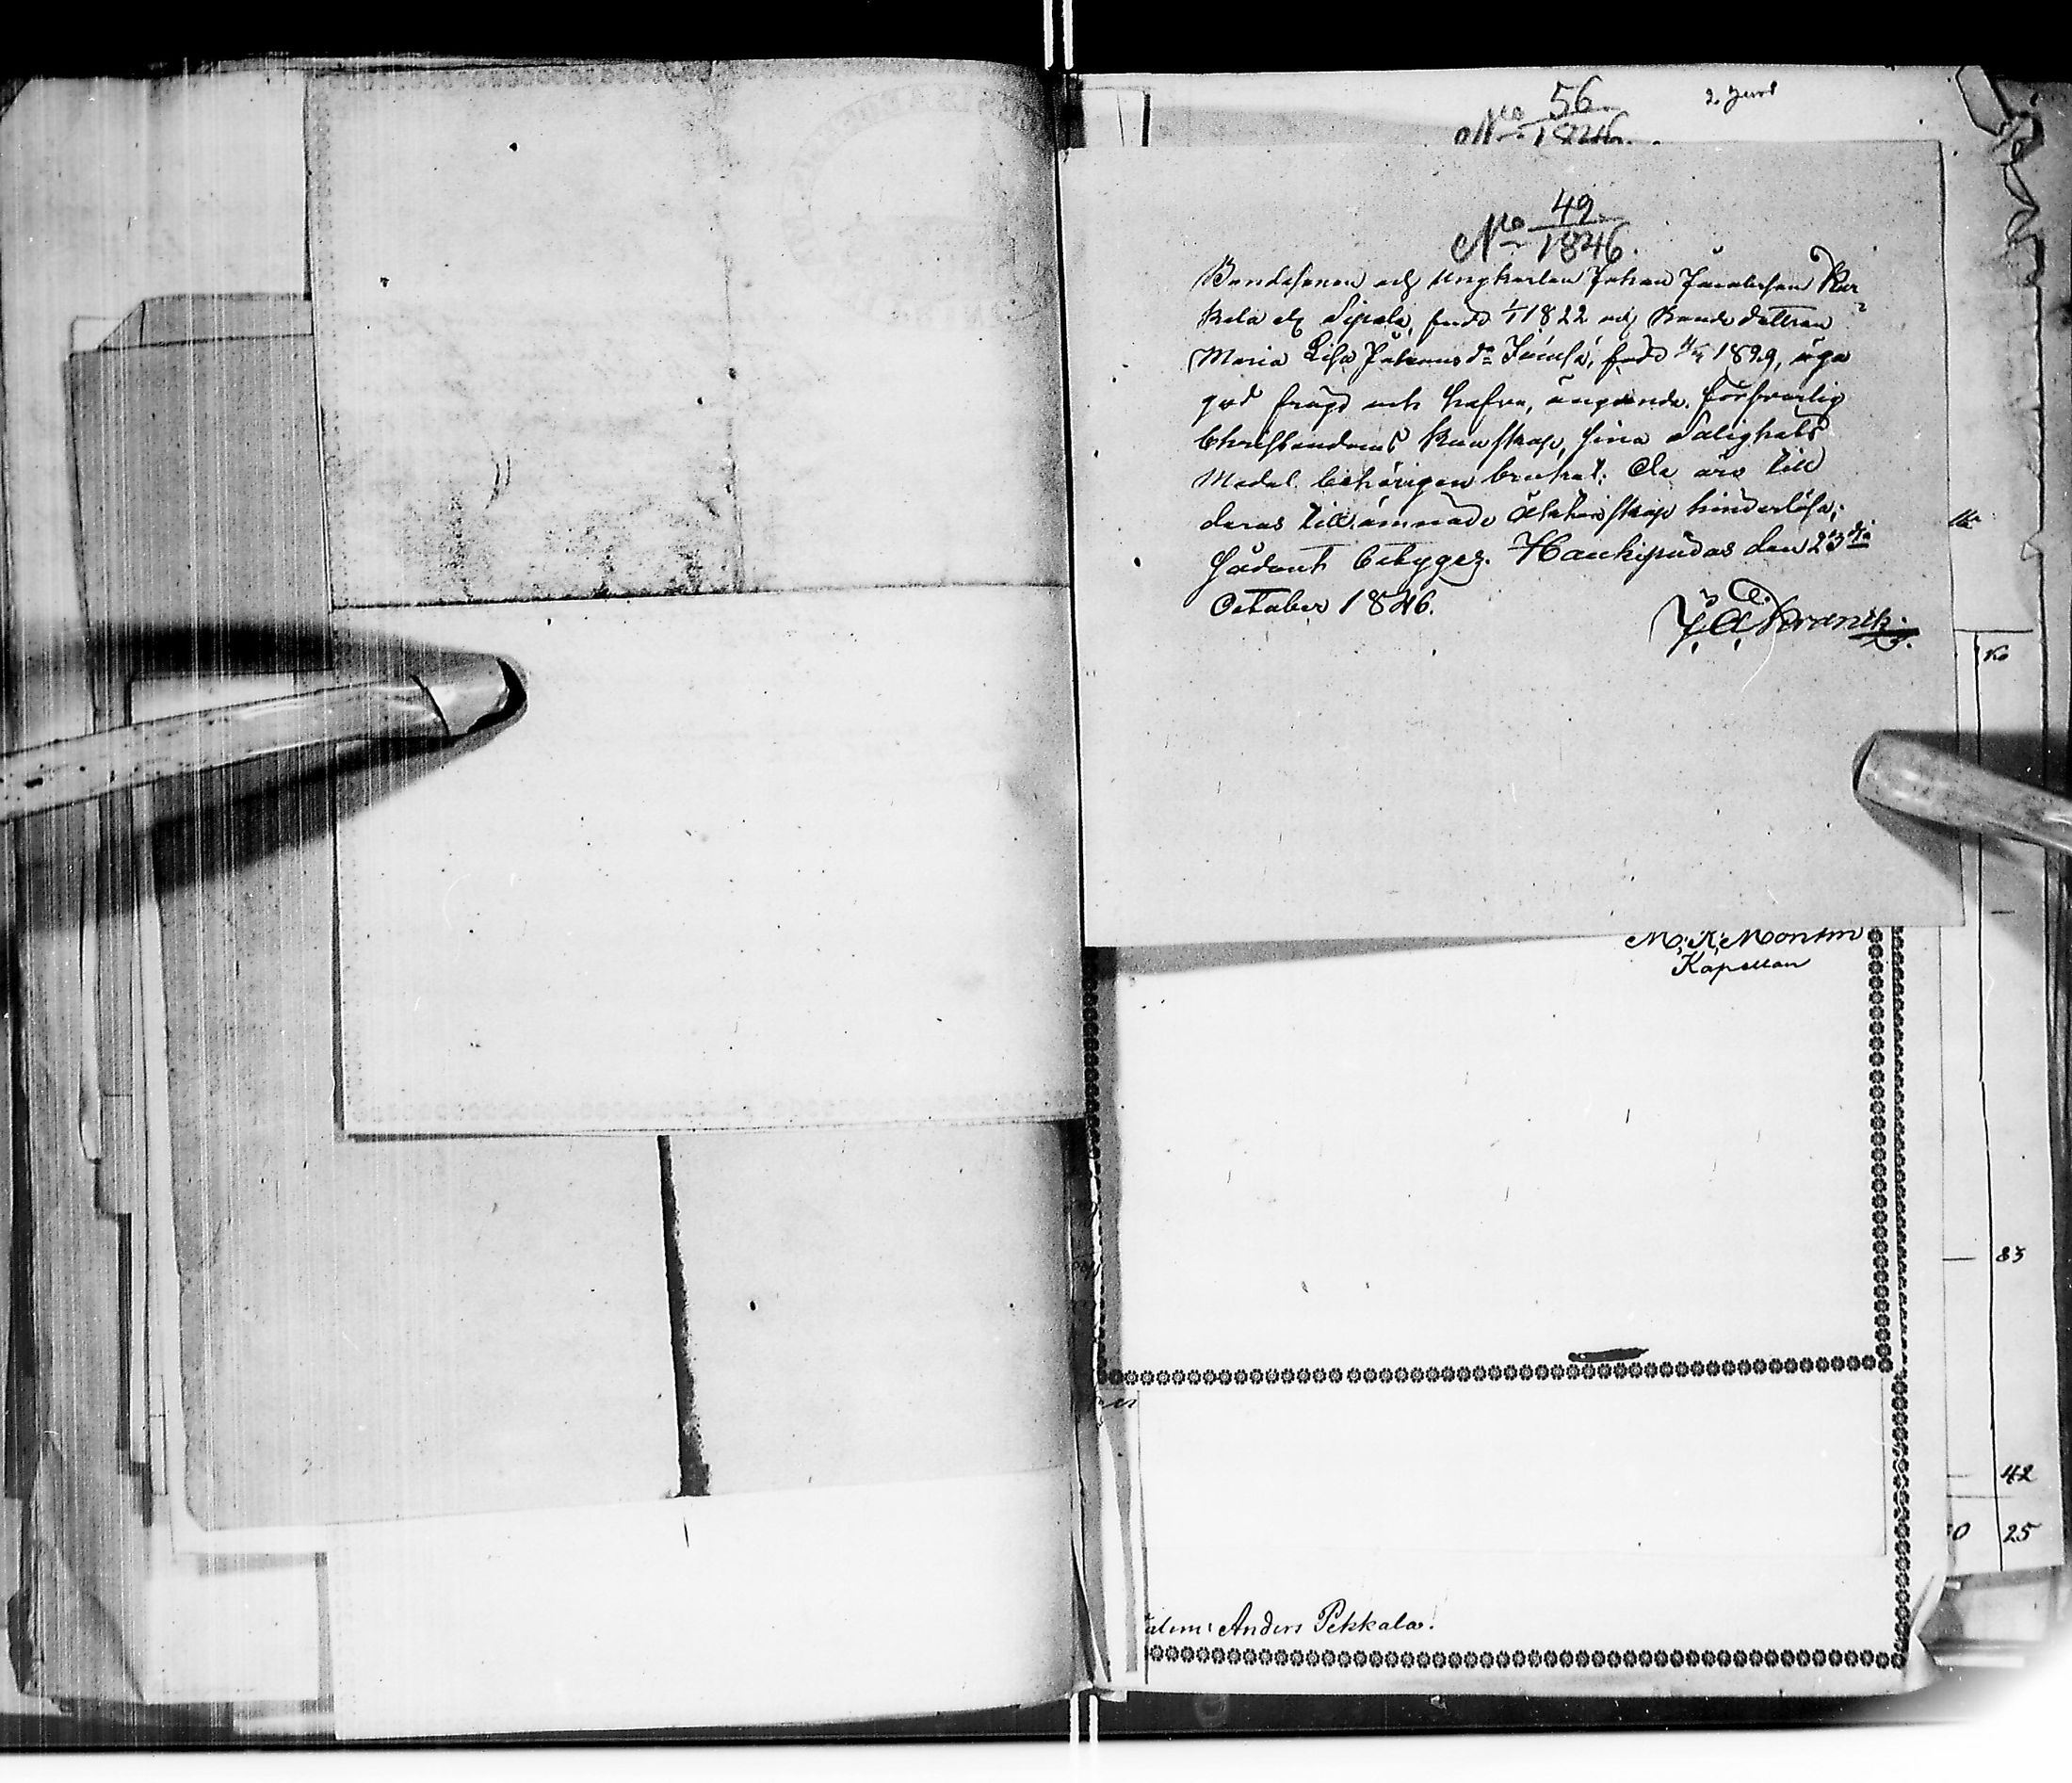 No 56
1846.
No 49
1846.
Bondesonen och Ungkarlen Johan Jacobsson Kar
kela el Sipola, född 1/1 1822 och Bondedottren
Maria Lisa Johansdr född 1829, äga
god frägd och hafva, ängande försvarlig
Christendoms kunskap, sina Salighets
Medel behörigen brukat. De äro till
deras tillämnade Äktenskap hinderlösa;
sådant betygar. Haukipudas den 23dje
October 1846.
M. K. Montin
Kapellan
83
42
0 25
Anders Pekkala.